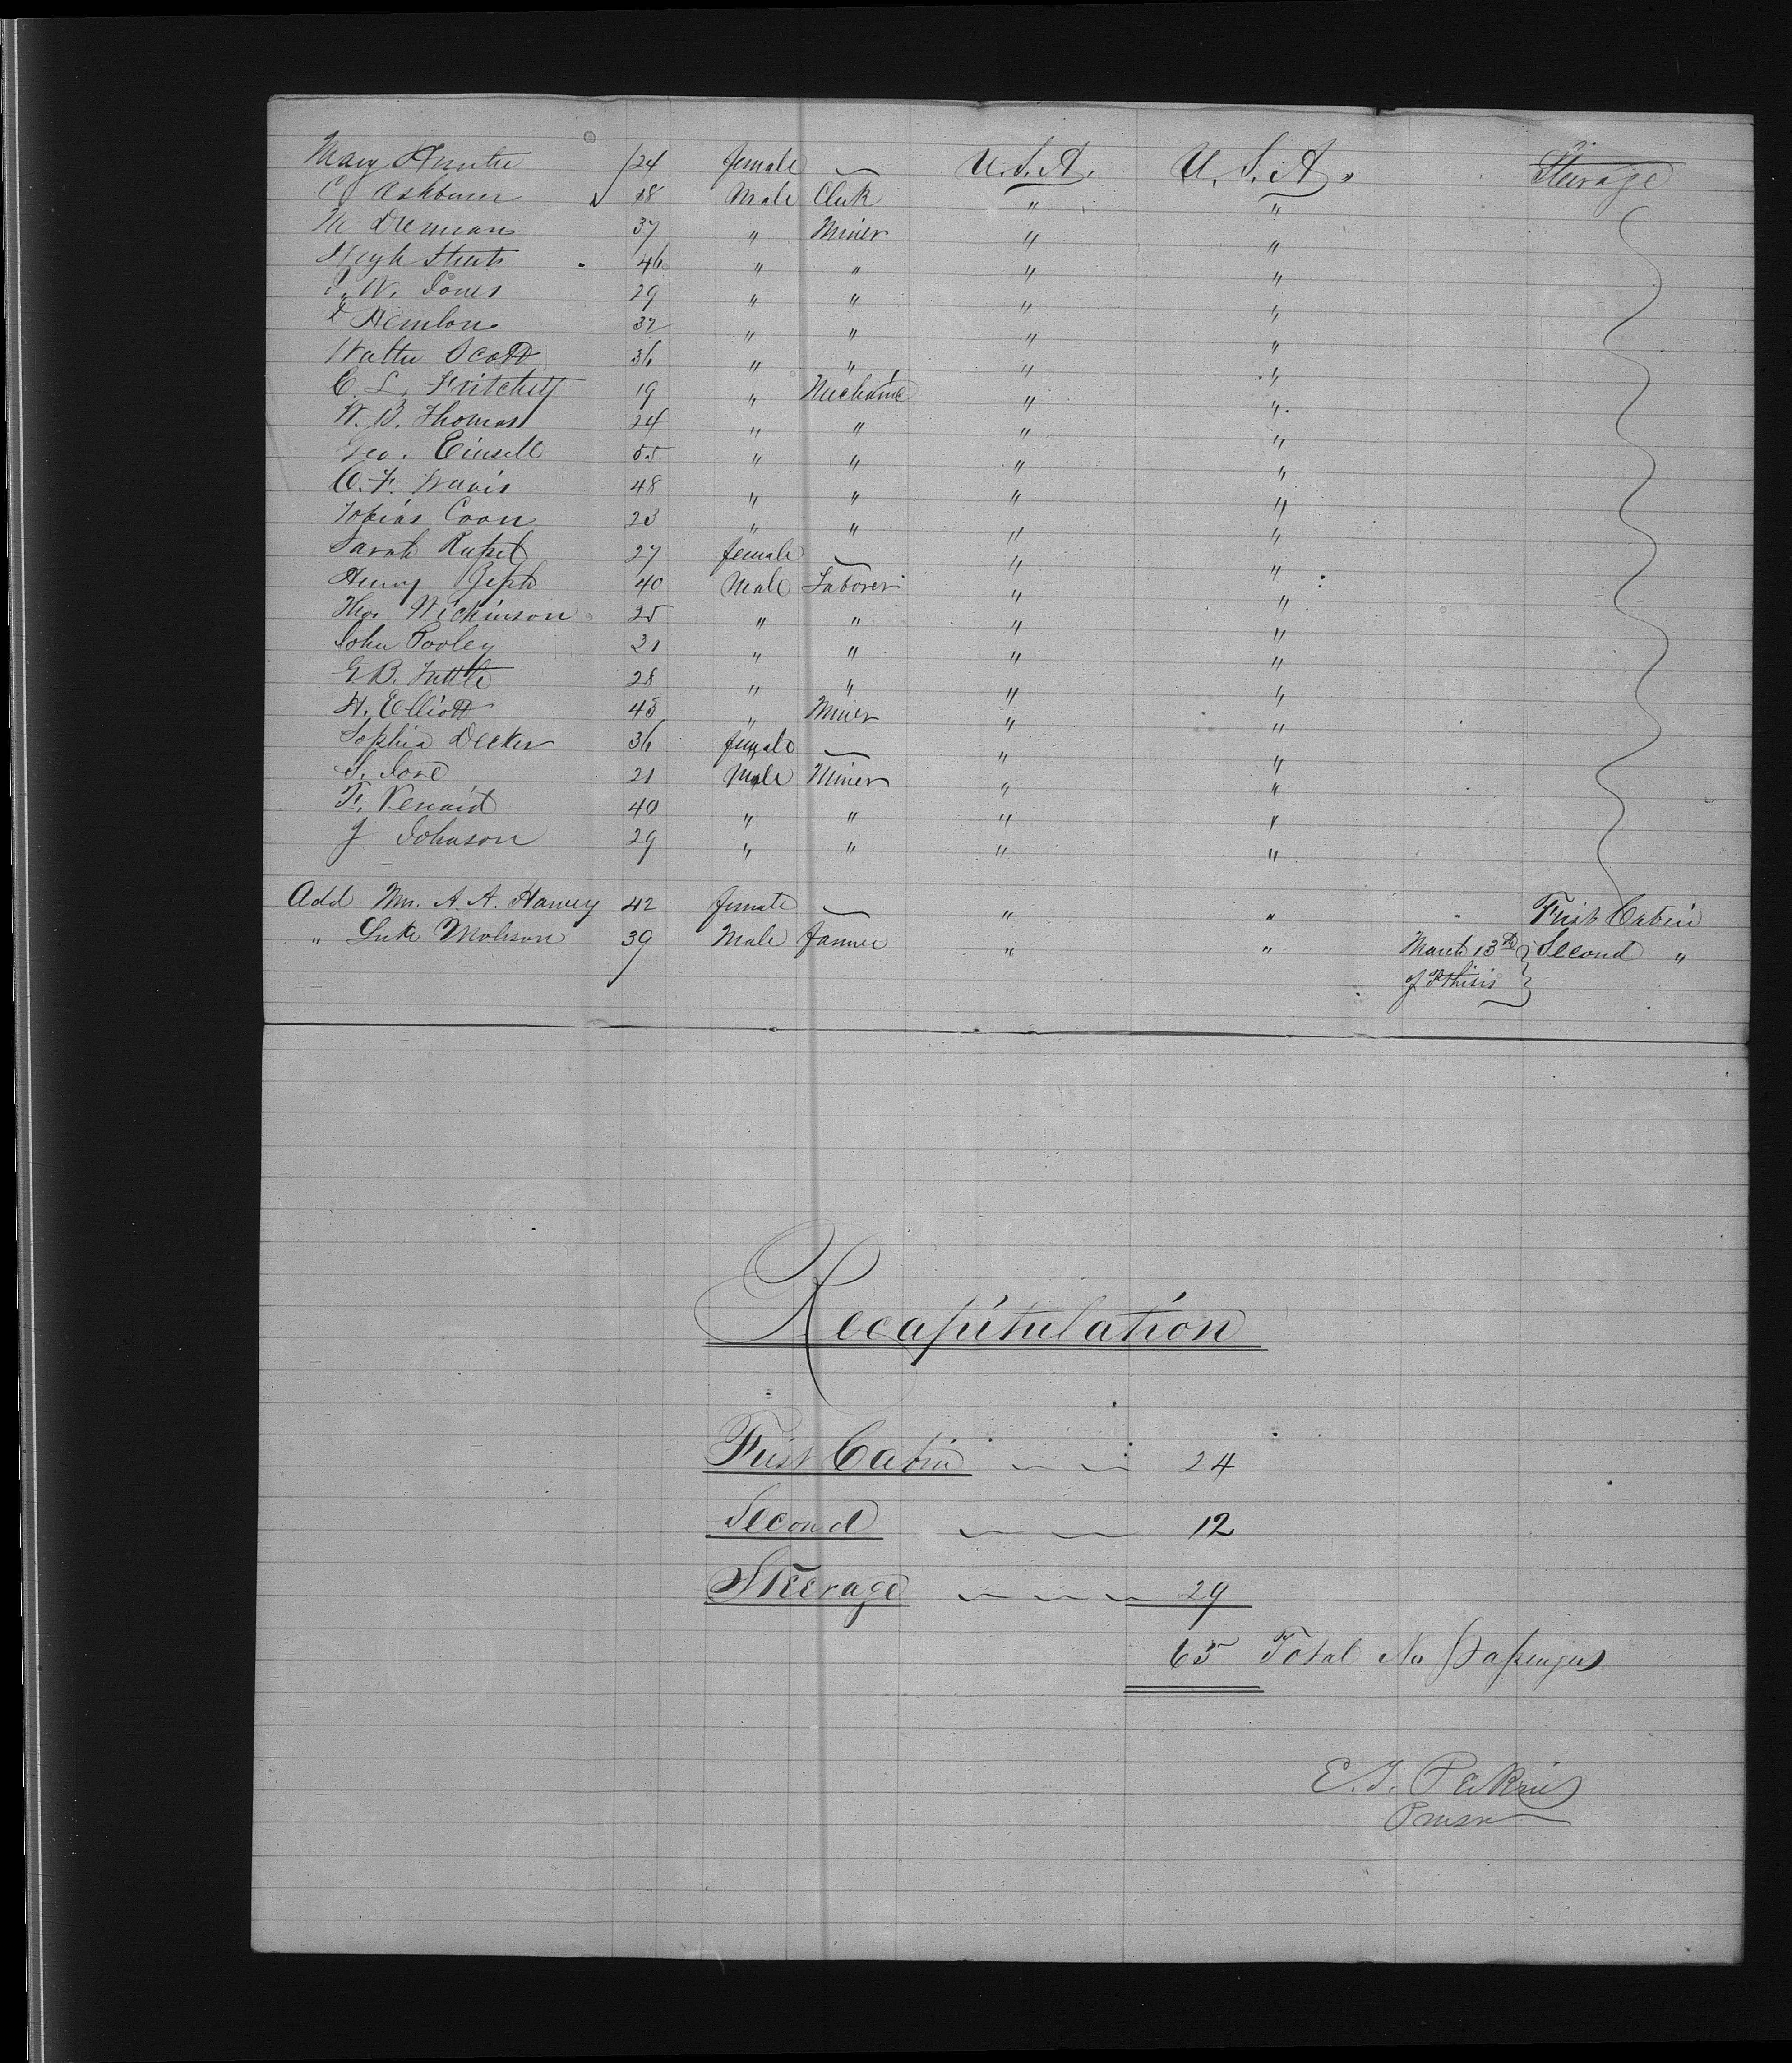 Mary Hunter 24 female — U.S.A. U.S.A. Steerage
C Ashburner 18 Male Clerk " "
M Drennan 37 " Miner " "
Hugh Sheets 46 " " " "
J. W. Jones 29 " " " "
Hemlon 32 " " " "
Walter Scott 36 " " " "
C. L. Pritchett 19 " Mechanic " "
W. B. Thomas 24 " " " "
Geo. Einsell 55 " " " "
O. F. Travis 48 " " " "
Tobias Coon 23 " " " "
Sarah Rupel 27 female — " "
Henry Zeph 40 Male Laborer " "
Thos Wickinson 25 " " " "
John Pooley 21 " " " "
G B. Tuttle 28 " " " "
H. Elliott 43 " Miner " "
Sophia Decker 36 female — " "
S. Jose 21 Male Miner " "
F. Venaid 40 " " " "
J Johnson 29 " " " "
Add Mrs. A. A. Harvey 42 female — " " " First Cabin
" Luke Mohson 39 Male Farmer " " March 13th Second "
of Pthisis
Recapitulation
First Cabin — — 24
Second — — 12
Steerage — — — 29
65 Total No Passengers
E. J. Perkins
Purser